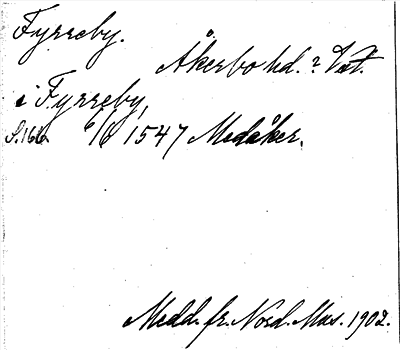 Fyrreby.
Åkerbo hd. ? Vstm.
i Fyrreby,
S. 166. 6/6 1547 Medåker.
Medd. fr. Nord. Mus. 1902.